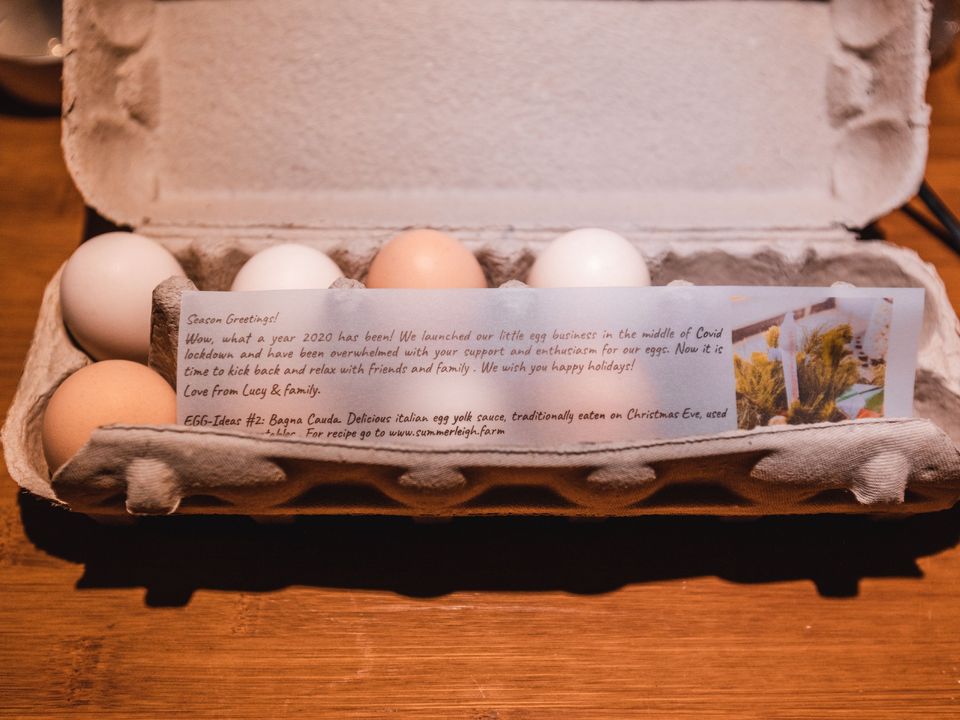 Season Greetings!
Wow, what a year 2020 has been! We launched our little egg business in the middle of Covid
lockdown and have been overwhelmed with your support and enthusiasm for our eggs. Now it is
time to kick back and relax with friends and family . We wish you happy holidays!
Love from Lucy & family.
EGG-Ideas #2: Bagna Cauda. Delicious italian egg yolk sauce, traditionally eaten on Christmas Eve, used
For recipe go to www.summerleigh.farm